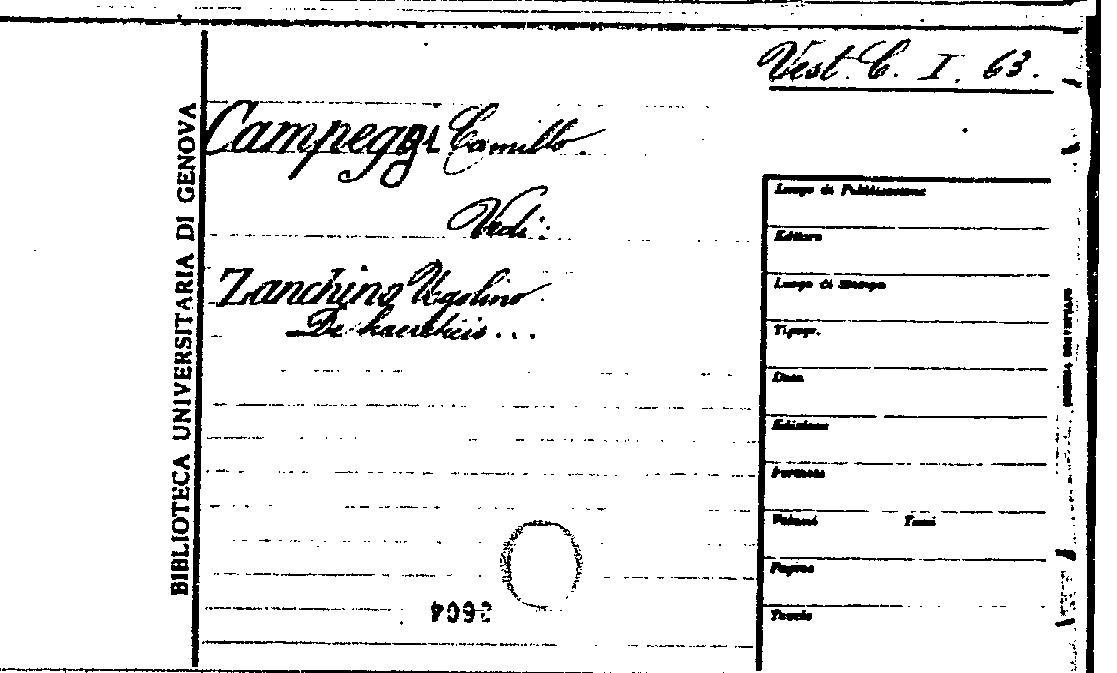 Vest. C. I. 63.
BIBLIOTECA UNIVERSITARIA DI GENOVA
Campeggi Camillo.
Vedi:
Zanchino Ugolino.
De haereticis...
Luogo di Pubblicazione
Editore
Luogo di Stampa
Tipogr.
Data
Edizione
Formato
Volumi Tomi
Pagine
Tavole
2604